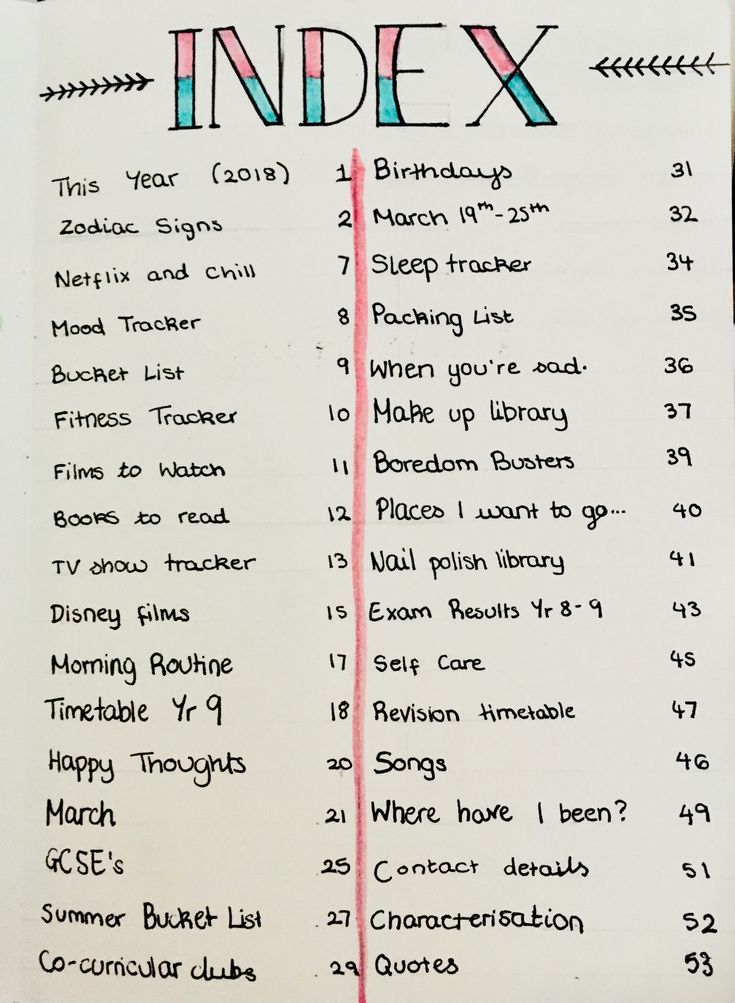 INDEX
This Year (2018) 1
Zodiac Signs 2
Netflix and Chill 7
Mood Tracker 8
Bucket List 9
Fitness Tracker 10
Films to Watch 11
Books to read 12
TV show tracker 13
Disney films 15
Morning Routine 17
Timetable Yr 9 18
Happy Thoughts 20
March 21
GCSE's 25
Summer Bucket List 27
Co-curricular clubs 29
Birthdays 31
March 19th-25th 32
Sleep tracker 34
Packing List 35
When you're sad. 36
Make up library 37
Boredom Busters 39
Places I want to go... 40
Nail polish library 41
Exam Results Yr 8-9 43
Self Care 45
Revision timetable 47
Songs 46
Where have I been? 49
Contact details 51
Characterisation 52
Quotes 53